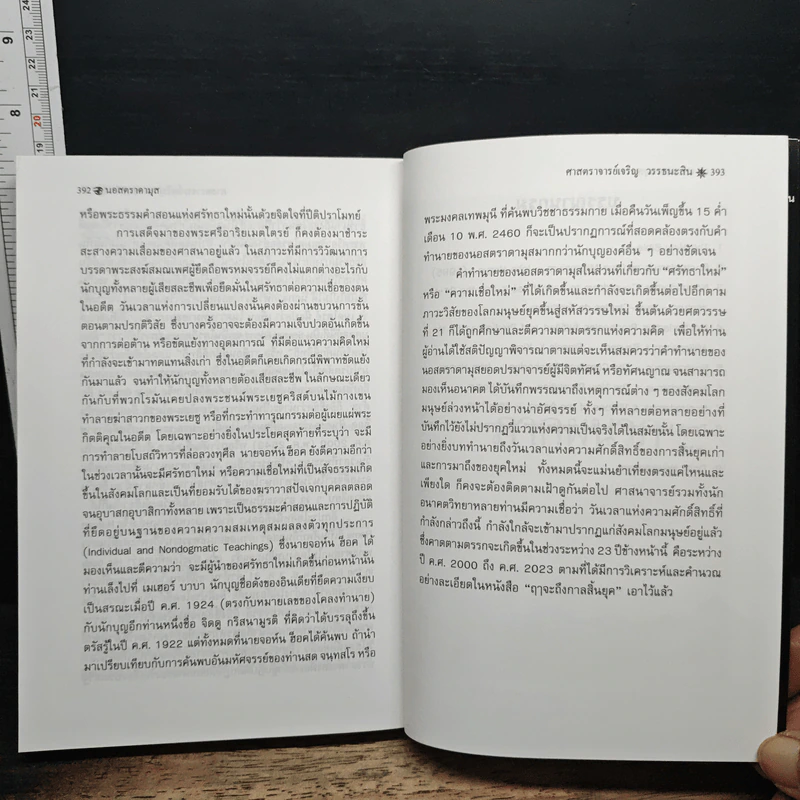 392 นอสตราดามุส
หรือพระธรรมคำสอนแห่งศรัทธาใหม่นั้นด้วยจิตใจที่ปีติปราโมทย์
การเสด็จมาของพระศรีอาริยเมตไตรย์ ก็คงต้องมาชำระ
สะสางความเสื่อมของศาสนาอยู่แล้ว ในสภาวะที่มีการวิวัฒนาการ
บรรดาพระสงฆ์สมณเพศผู้ยึดถือพรหมจรรย์ก็คงไม่แตกต่างอะไรกับ
นักบุญทั้งหลายผู้เสียสละชีพเพื่อยึดมั่นในศรัทธาต่อความเชื่อของตน
ในอดีต วันเวลาแห่งการเปลี่ยนแปลงนั้นคงต้องผ่านขบวนการขั้น
ตอนตามปรกติวิสัย ซึ่งบางครั้งอาจจะต้องมีความเจ็บปวดอันเกิดขึ้น
จากการต่อต้าน หรือขัดแย้งทางอุดมการณ์ ที่มีต่อแนวความคิดใหม่
ที่กำลังจะเข้ามาทดแทนสิ่งเก่า ซึ่งในอดีตก็เคยเกิดกรณีพิพาทขัดแย้ง
กันมาแล้ว จนทำให้นักบุญทั้งหลายต้องเสียสละชีพ ในลักษณะเดียว
กันกับที่พวกโรมันเคยปลงพระชนม์พระเยซูคริสต์บนไม้กางเขน
ทำลายฆ่าสาวกของพระเยซู หรือที่กระทำทารุณกรรมต่อผู้เผยแผ่พระ
กิตติคุณในอดีต โดยเฉพาะอย่างยิ่งในประโยคสุดท้ายที่ระบุว่า จะมี
การทำลายโบสถ์วิหารที่ล่อลวงทุศีล นายจอห์น ฮ็อค ยังตีความอีกว่า
ในช่วงเวลานั้นจะมีศรัทธาใหม่ หรือความเชื่อใหม่ที่เป็นสัจธรรมเกิด
ขึ้นในสังคมโลกและเป็นที่ยอมรับได้ของฆราวาสปัจเจกบุคคลตลอด
จนอุบาสกอุบาสิกาทั้งหลาย เพราะเป็นธรรมะคำสอนและการปฏิบัติ
ที่ยึดอยู่บนฐานของความความสมเหตุสมผลลงตัวทุกประการ
(Individual and Nondogmatic Teachings) ซึ่งนายจอห์น ฮ็อค ได้
มองเห็นและตีความว่า จะมีผู้นำของศรัทธาใหม่เกิดขึ้นก่อนหน้านั้น
ท่านเล็งไปที่ เมเฮอร์ บาบา นักบุญชื่อดังของอินเดียที่ยึดความเงียบ
เป็นสรณะเมื่อปี ค.ศ. 1924 (ตรงกับหมายเลขของโคลงทำนาย)
กับนักบุญอีกท่านหนึ่งชื่อ จิดดู กริสนามูรติ ที่คิดว่าได้บรรลุถึงขั้น
ตรัสรู้ในปี ค.ศ. 1922 แต่ทั้งหมดที่นายจอห์น ฮ็อคได้ค้นพบ ถ้านำ
มาเปรียบเทียบกับการค้นพบอันมหัศจรรย์ของท่านสด จนฺทสโร หรือ
ศาสตราจารย์เจริญ วรรธนะสิน 393
พระมงคลเทพมุนี ที่ค้นพบวิชชาธรรมกาย เมื่อคืนวันเพ็ญขึ้น 15 ค่ำ
เดือน 10 พ.ศ. 2460 ก็จะเป็นปรากฏการณ์ที่สอดคล้องตรงกับคำ
ทำนายของนอสตราดามุสมากกว่านักบุญองค์อื่น ๆ อย่างชัดเจน
คำทำนายของนอสตราดามุสในส่วนที่เกี่ยวกับ "ศรัทธาใหม่"
หรือ "ความเชื่อใหม่" ที่ได้เกิดขึ้นและกำลังจะเกิดขึ้นต่อไปอีกตาม
ภาวะวิสัยของโลกมนุษย์ยุคขึ้นสู่สหัสวรรษใหม่ ขึ้นต้นด้วยศตวรรษ
ที่ 21 ก็ได้ถูกศึกษาและตีความตามตรรกแห่งความคิด เพื่อให้ท่าน
ผู้อ่านได้ใช้สติปัญญาพิจารณาตามแต่จะเห็นสมควรว่าคำทำนายของ
นอสตราดามุสยอดปรมาจารย์ผู้มีจิตทัศน์ หรือทัศนญาณ จนสามารถ
มองเห็นอนาคต ได้บันทึกพรรณนาถึงเหตุการณ์ต่าง ๆ ของสังคมโลก
มนุษย์ล่วงหน้าได้อย่างน่าอัศจรรย์ ทั้งๆ ที่หลายต่อหลายอย่างที่
บันทึกไว้ยังไม่ปรากฏวี่แววแห่งความเป็นจริงได้ในสมัยนั้น โดยเฉพาะ
อย่างยิ่งบททำนายถึงวันเวลาแห่งความศักดิ์สิทธิ์ของการสิ้นยุคเก่า
และการมาถึงของยุคใหม่ ทั้งหมดนี้จะแม่นยำเที่ยงตรงแค่ไหนและ
เพียงใด ก็คงจะต้องติดตามเฝ้าดูกันต่อไป ศาสนาจารย์รวมทั้งนัก
อนาคตวิทยาหลายท่านมีความเชื่อว่า วันเวลาแห่งความศักดิ์สิทธิ์ที่
กำลังกล่าวถึงนี้ กำลังใกล้จะเข้ามาปรากฏแก่สังคมโลกมนุษย์อยู่แล้ว
ซึ่งคาดตามตรรกจะเกิดขึ้นในช่วงระหว่าง 23 ปีข้างหน้านี้ คือระหว่าง
ปี ค.ศ. 2000 ถึง ค.ศ. 2023 ตามที่ได้มีการวิเคราะห์และคำนวณ
อย่างละเอียดในหนังสือ "ฤๅจะถึงกาลสิ้นยุค" เอาไว้แล้ว